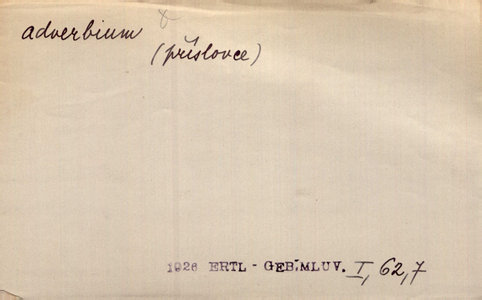 adverbium
(příslovce)
1926 ERTL - GEB. MLUV. I, 62,7